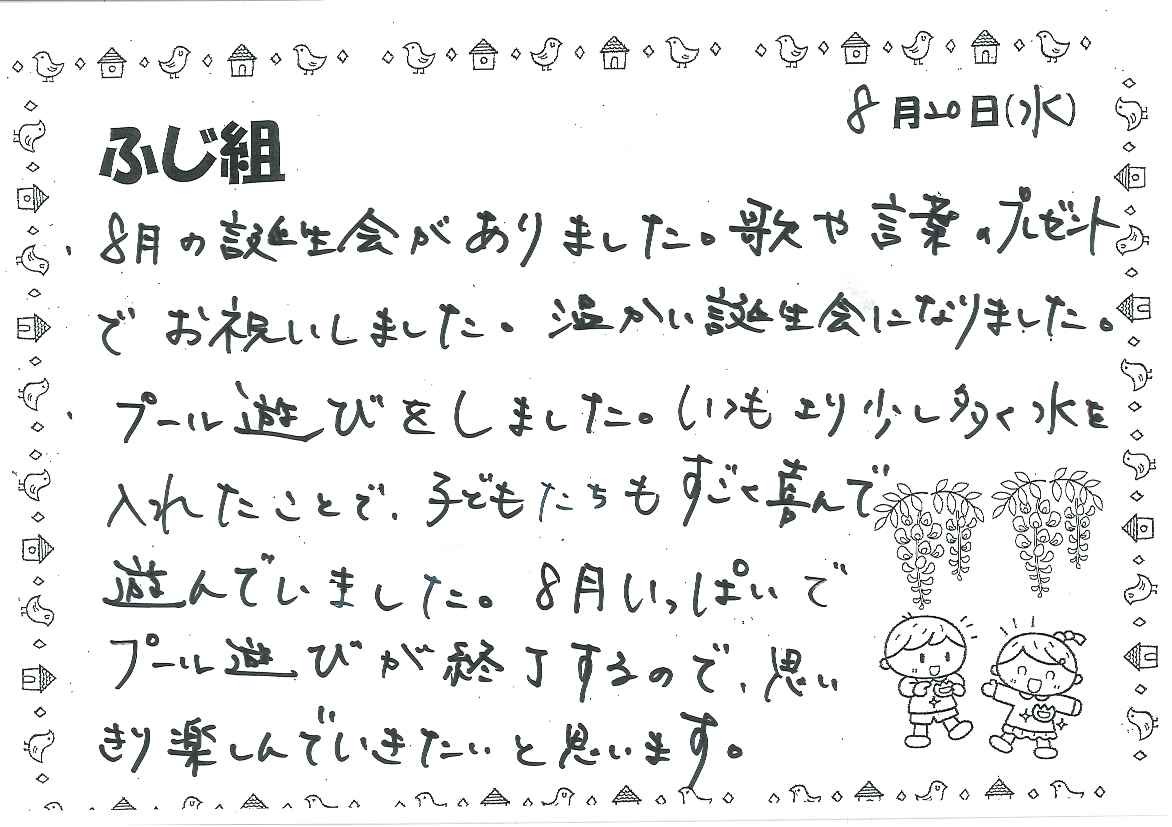 8月20日(水)
ふじ組
・8月の誕生会がありました。歌や言葉のプレゼント
でお祝いしました。温かい誕生会になりました。
・プール遊びをしました。いつもより少し多く水を
入れたことで、子どもたちもすごく喜んで
遊んでいました。8月いっぱいで
プール遊びが終了するので、思い
きり楽しんでいきたいと思います。